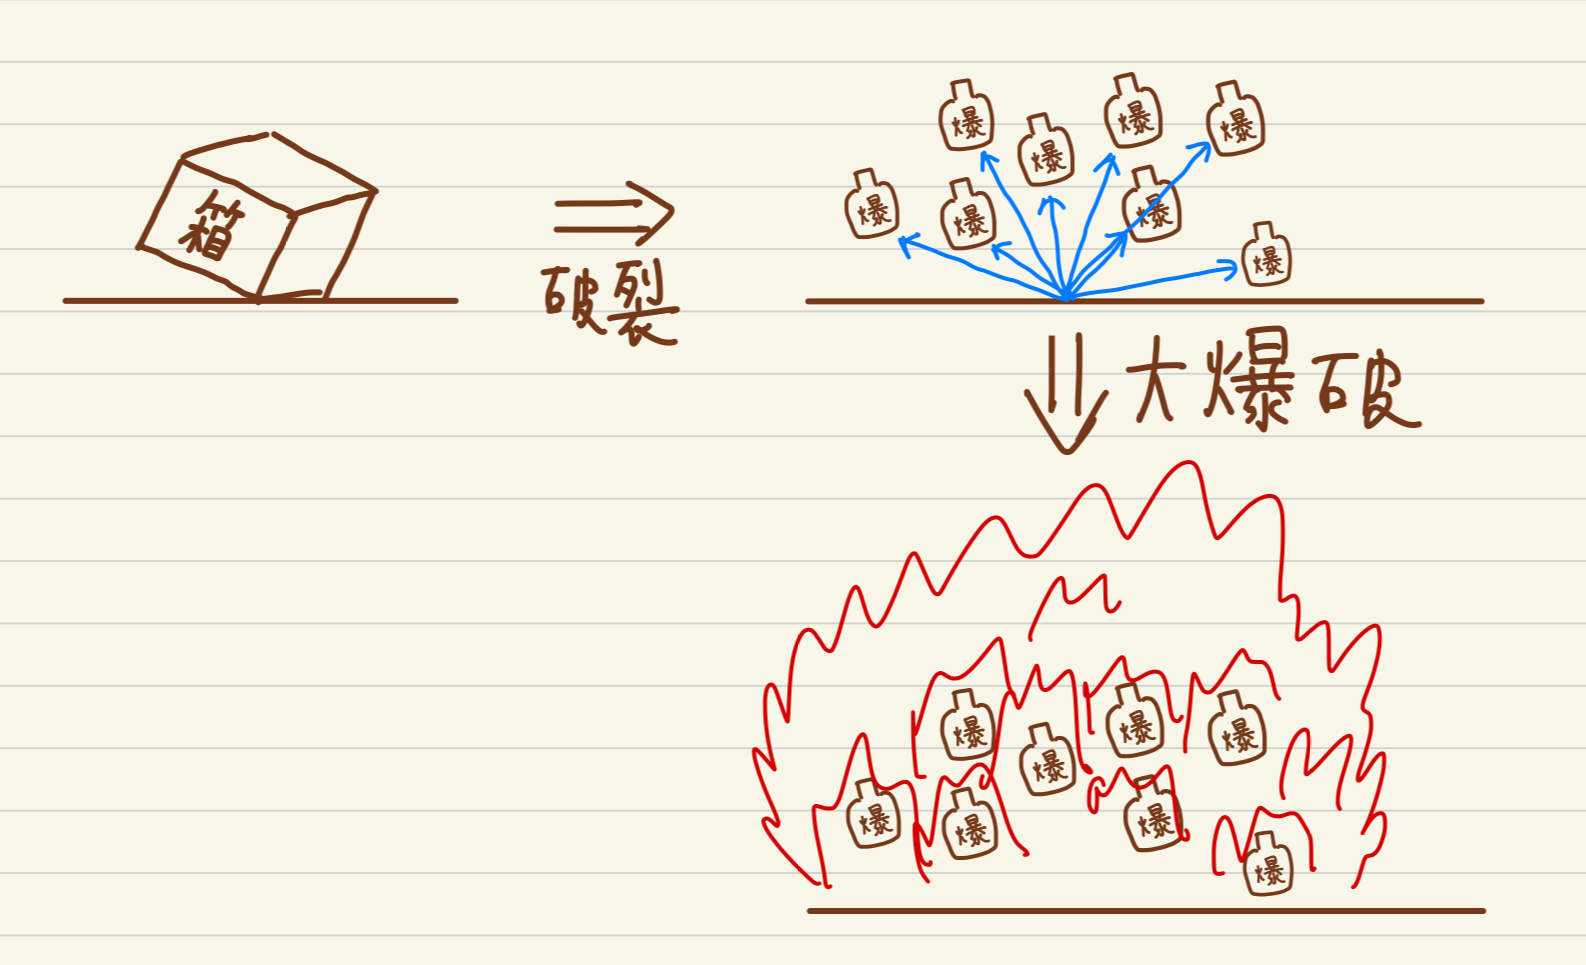 箱
破裂
爆
爆
爆
爆
爆
爆
爆
爆
大爆破
爆
爆
爆
爆
爆
爆
爆
爆